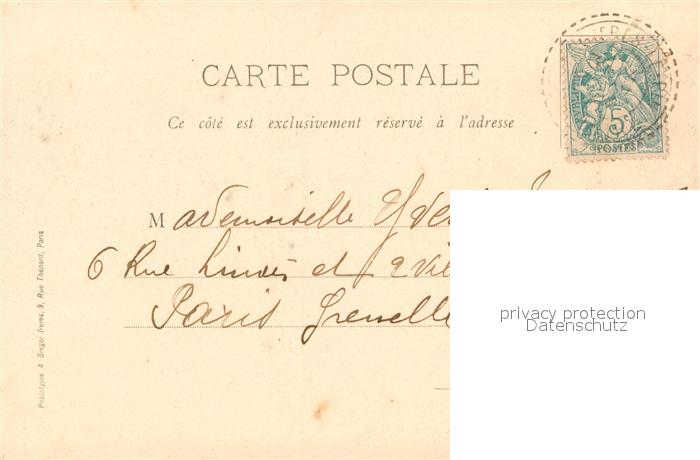 CARTE POSTALE
Ce côté est exclusivement réservé à l'adresse
5c
POSTES
Mademoiselle
6 Rue et
Paris Grenelle
Phototypie A Breger freres, 9, Rue Thénard, Paris
privacy protection
Datenschutz